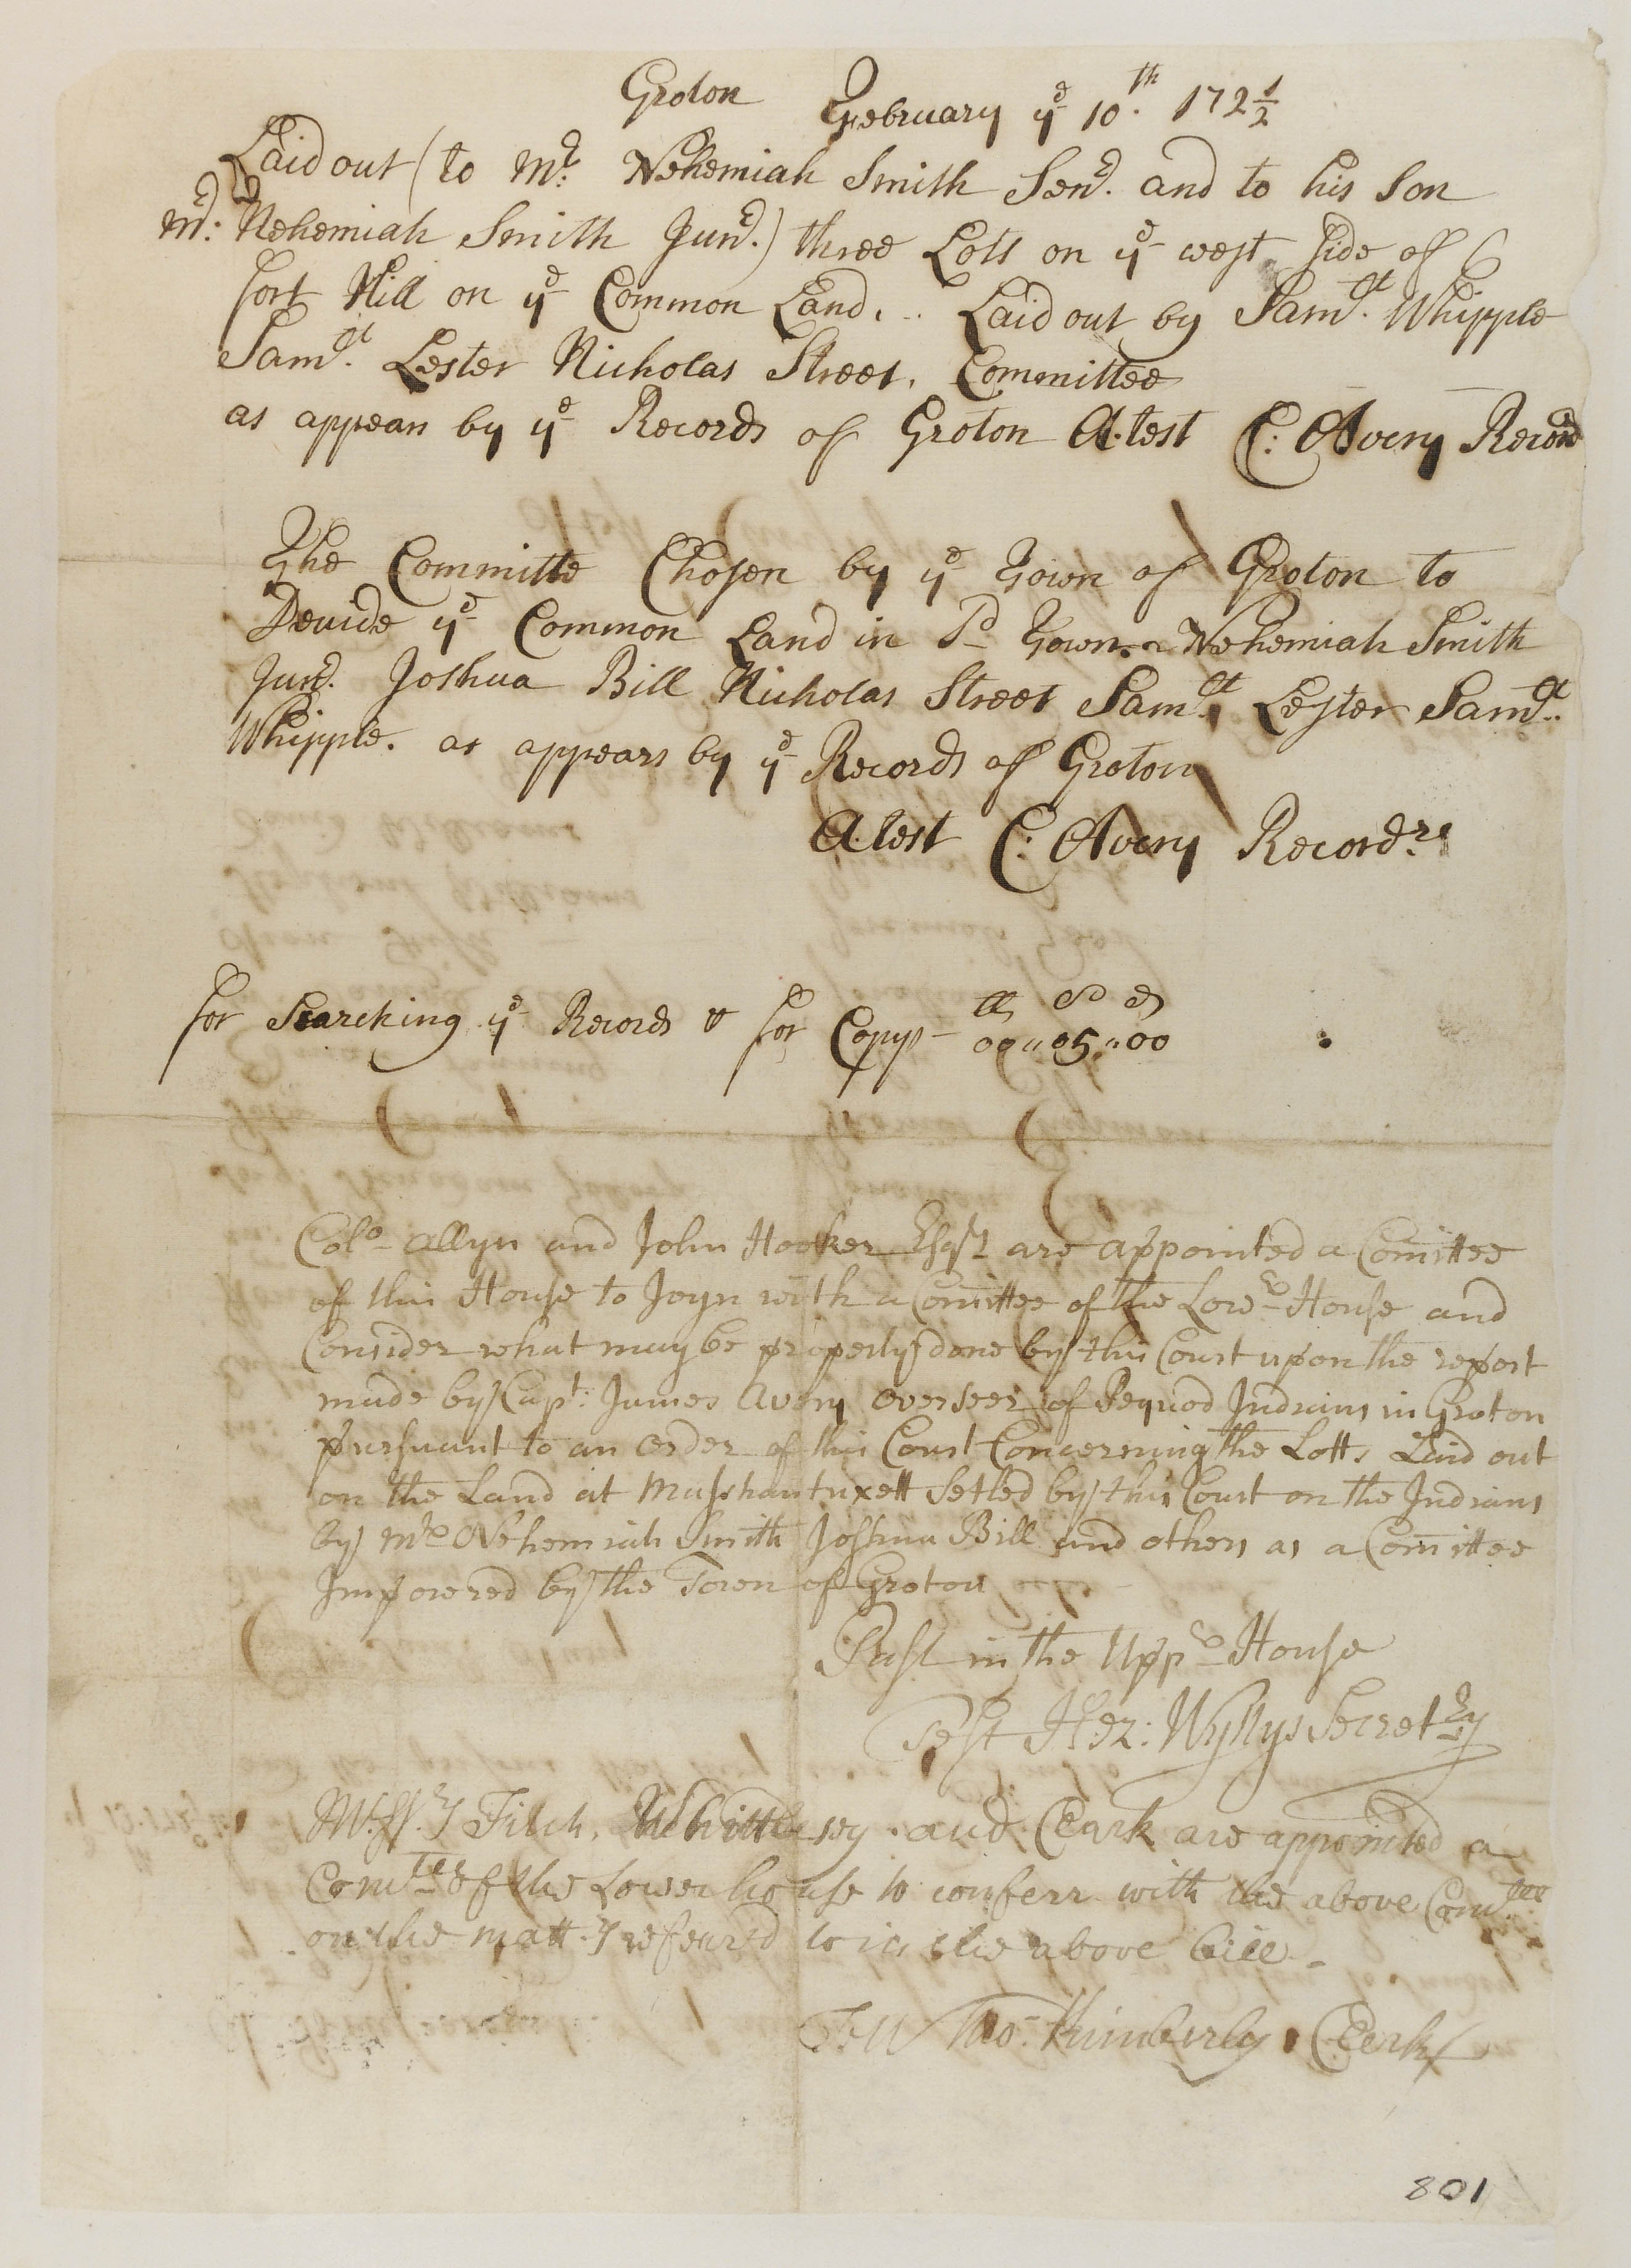 Groton February ye 10th. 172½
Laid out (to Mr. Nehemiah Smith Senr. and to his Son
Mr: Nehemiah Smith Junr.) three Lots on ye west side of
fort Hill on ye Common Land. Laid out by Samll. Whipple
Samll. Lester Nicholas Street. Committee
as appears by ye Records of Groton Atest C: Avery Recordr
The Committe Chosen by ye Town of Groton to
Devide ye Common Land in Sd Town Nehemiah Smith
Junr. Joshua Bill Nicholas Street Samll. Lester Samll.
Whipple. as appears by ye Records of Groton
Atest C: Avery Recordr.
for Searching ye Records & for Copy - ll s d
00"05"00
Colo Allyn and John Hooker Esqrs are appointed a Comittee
of this House to Joyn with a Comittee of the Lowr House and
Consider what may be properly done by this Court upon the report
made by Capt: James Avery overseer of Pequod Indians in Groton
pursuant to an order of this Court Concerning the Lotts Laid out
on the Land at Mashantuxett Setled by this Court on the Indians
by Mr Nehemiah Smith Joshua Bill and others as a Comittee
Impowered by the Town of Groton
Past in the Uppr House
Test Hez: Wyllys Secretry
Messrs Fitch, Whittlesey and Clark are appointed a
Comtee of the Lower house to conferr with the above Comtee
on the mattrs refeared to in the above bill
Test Tho: Kimberly Clerk
801